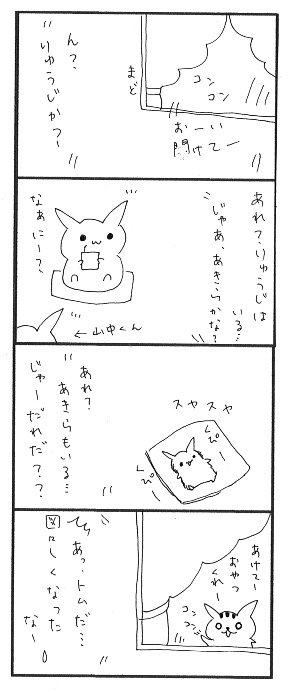 コン
コン
おーい
開けてー
まど
ん？
りゅうじかなー
あれ？りゅうじは
いる…
じゃあ、あきらかな？
なぁにー？
←山中くん
スヤスヤ
くぴー
くぴー
あれ？
あきらもいる…
じゃーだれだ？？
あけてー
おやつ
くれー
コン
コン
あっ、トムだ…
図々しくなった
なー